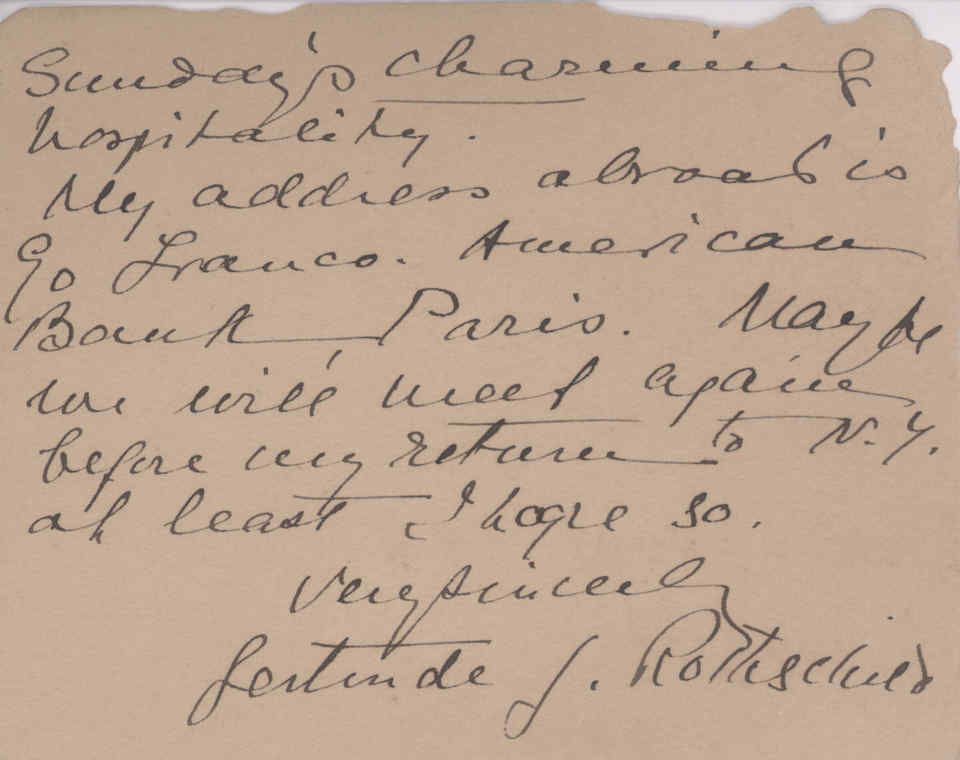 Sunday's charming
hospitality.
My address abroad is
c/o Franco. American
Bank Paris. Maybe
we will meet again
before my return to N.Y.
at least I hope so.
Very sincerely
Gertrude J. Rothschild